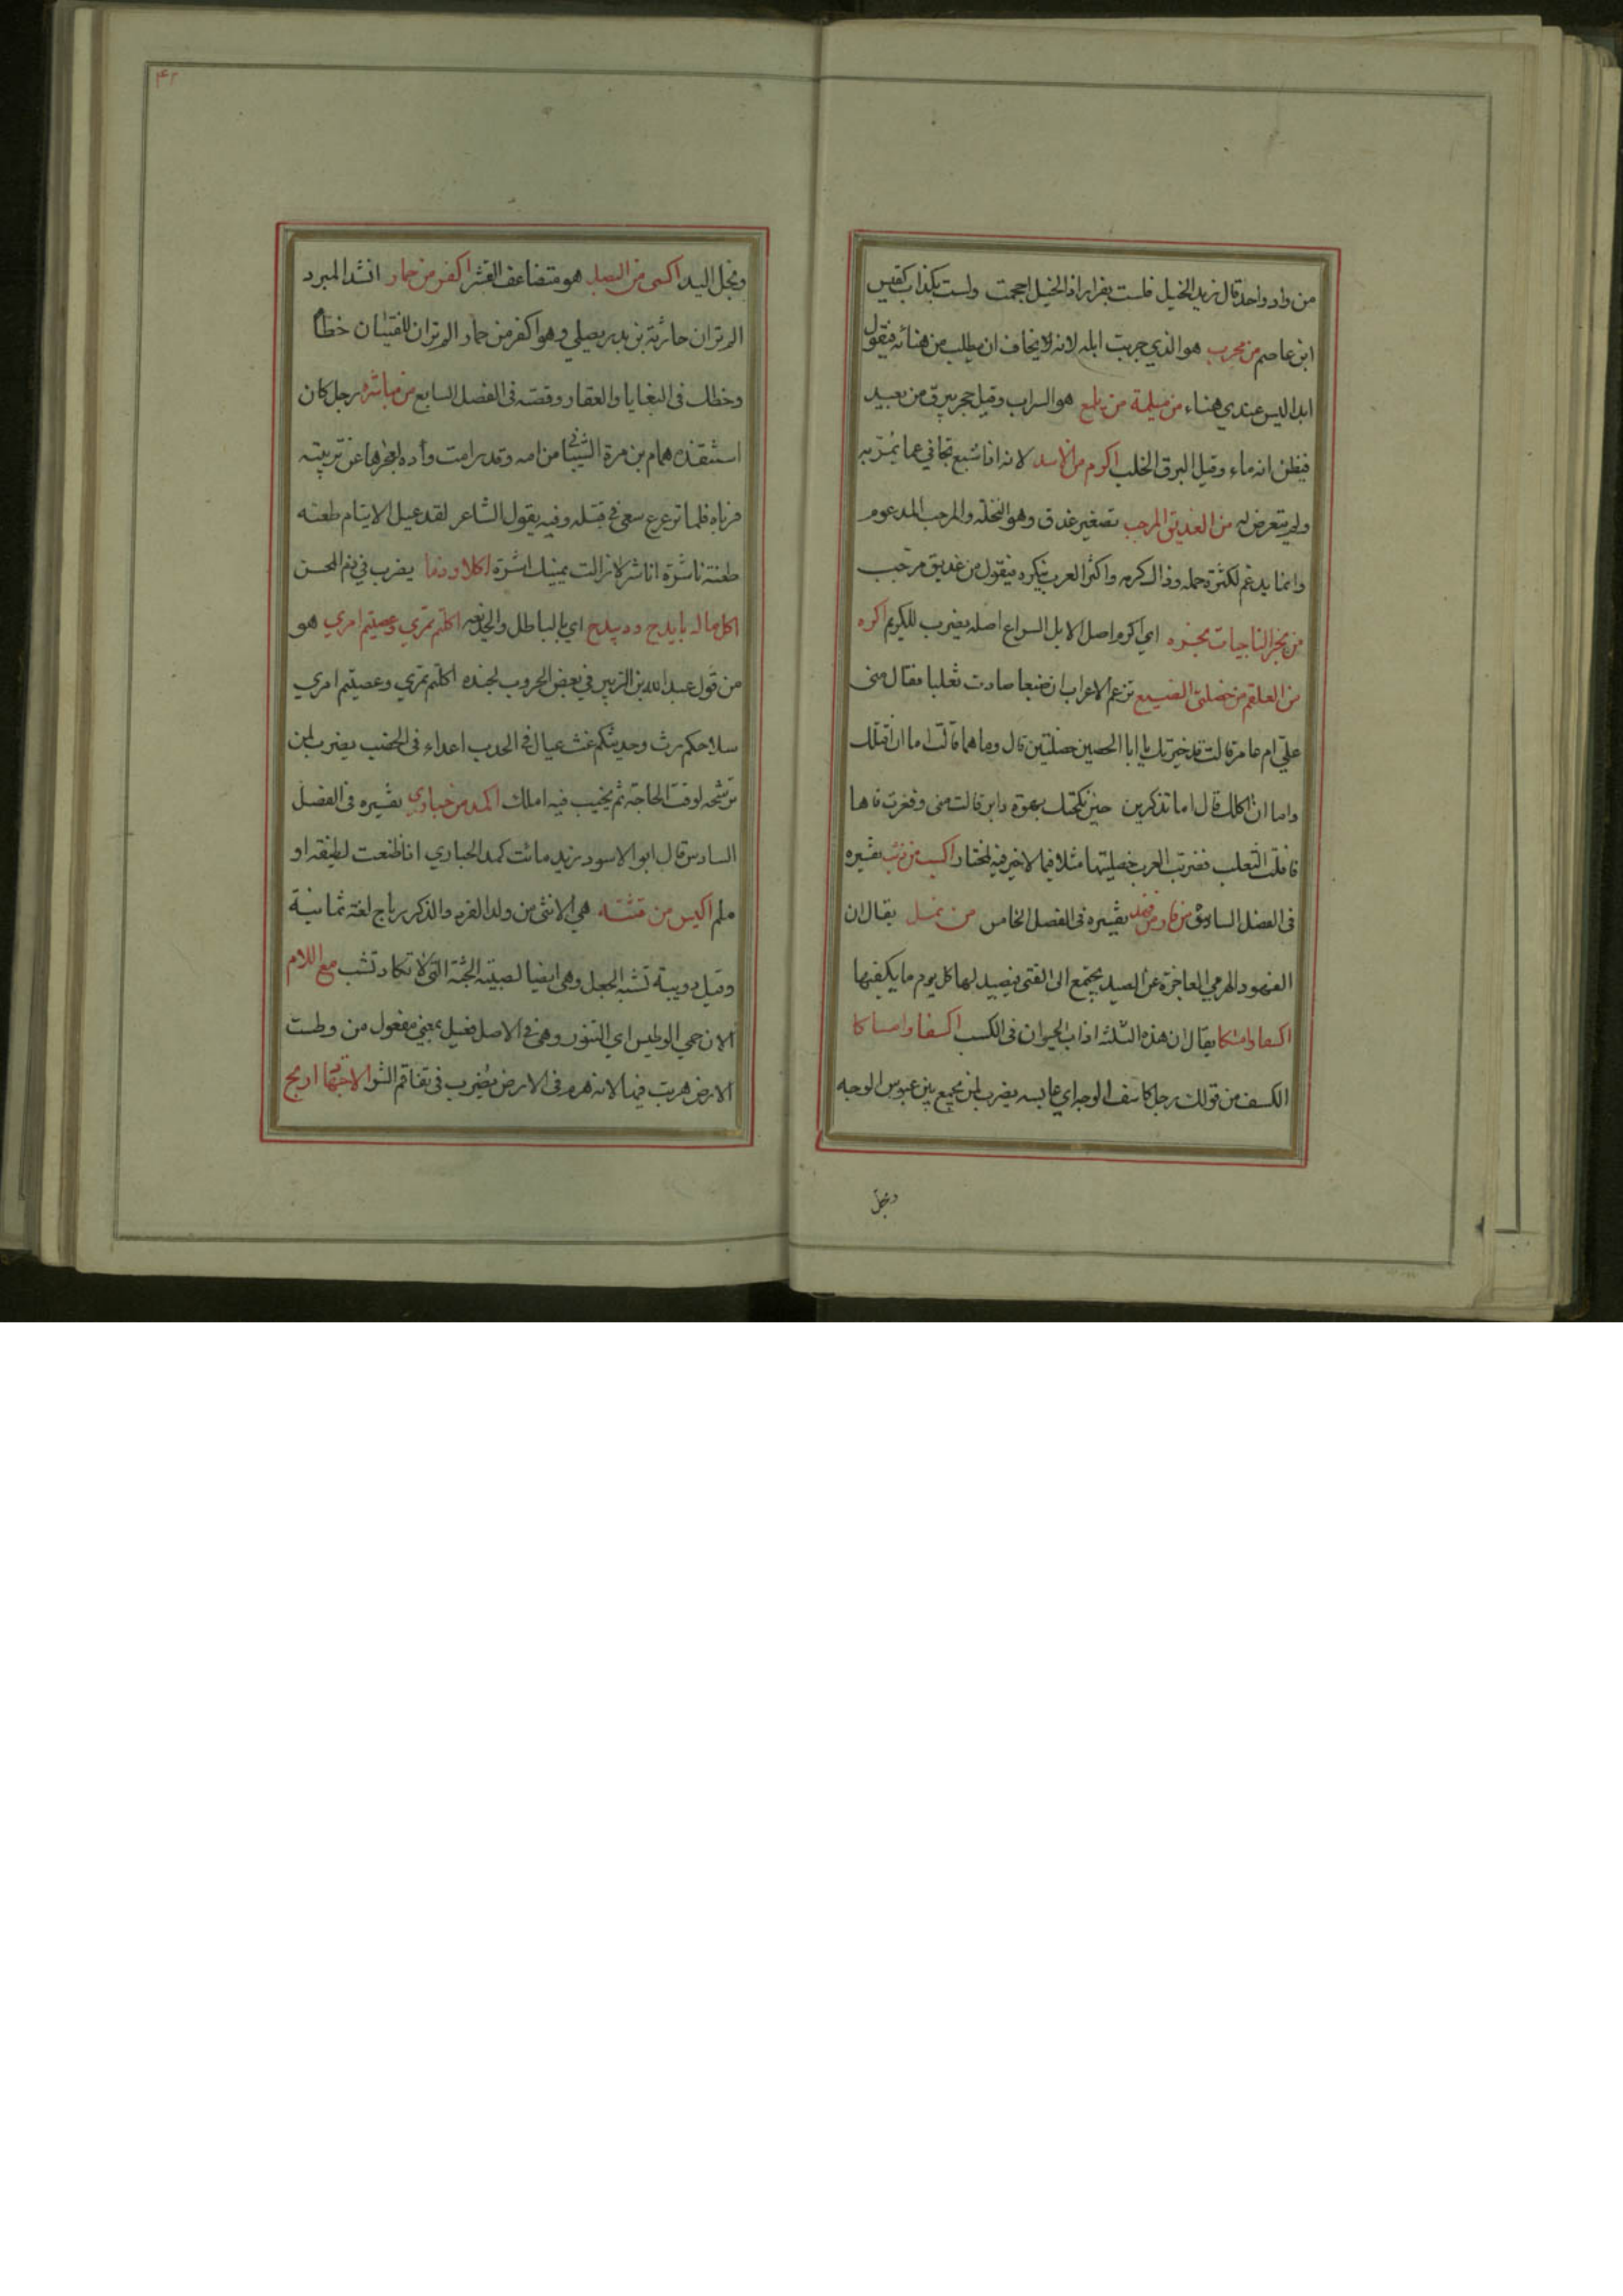 من واد واحد قال زيد الخيل فلست بفرار اذا الخيل اجمت ولست بكذاب كقيس
ابن عاصم من مجرب هو الذي جربت ابله لانه لا يخاف ان يطلب من هنائه فيقول
ابدا ليس عندي هناء من يلمع هو السراب وقيل حجر يبرق من بعيد
فيظن انه ماء وقيل البرق الخلب اكرم من الاسد لانه اذا شبع تجافي عما يمر به
ولم يتعرض له من العذيق المرجب تصغير عذق وهو النخلة والمرجب المدعوم
وانما يدعم لكثرة حمله وذاك كرمه واكثر العرب ينكره فيقول من عذيق مرجب
من نجر الناجيات نجره اي اكرم اصل الابل السراع اصله يضرب للكريم اكره
من العلقم من خصلتي الضبع تزعم الاعراب ان ضبعا صادت ثعلبا فقال مني
علي ام عامر قالت قد خيرتك يا ابا الحصين خصلتين قال وما هما قالت اما ان اقتلك
واما ان اكلك قال اما تذكرين حين نكحتك بهوة دابر قالت متى وفغرت فاها
فافلت الثعلب فضربت العرب خصلتيها مثلا فيما لا خير فيه لمختار اكسب من ذئب تفسيره
في الفصل السادس من فار من فهد تفسيره في الفصل الخامس من نمل يقال ان
الفهود الهرمي العاجزة عن الصيد يجتمع الى الفتى فيصيد لها كل يوم ما يكفيها
يقال ان هذه الثلثة اداب الحيوان في الكسب اكسفا وامساكا
الكسف من قولك رجل كاسف الوجه اي عابسه يضرب لمن يجمع بين عبوس الوجه
وبخل
۴۲
وبخل اليد اكسى من البصل هو متضاعف القشر اكفر من حمار انشد المبرد
الم تر ان حارثة بن بدر يصلي وهو اكفر من حمار الم تر ان للفتيان خطا
وخطك في البغايا والعقار وقصته في الفصل السابع من ناشره رجل كان
استنقذه همام بن مرة الشيباني من امه وقد رامت وأده لعجزها عن تربيته
فرباه فلما ترعرع سعى في قتله وفيه يقول الشاعر لقد عيل الايتام طعنه
طعنة ناشرة اناشر لا زالت يمينك اشرة اكلا وذما يضرب في ذم المحسن
اكل ماله بابدح ودبيدح اي بالباطل والخديعه اكلتم تمري وعصيتم امري هو
من قول عبد الله بن الزبير في بعض الحروب لجنده اكلتم تمري وعصيتم امري
سلاحكم رث وحديثكم غث عيال في الجدب اعداء في الخصب يضرب لمن
ترشحه لوقت الحاجة ثم يخيب فيه املك اكمد من حباري تفسيره في الفصل
السادس قال ابو الاسود يزيد مائت كمد الحباري اذا ظعنت لطيفة او
ملم اكيس من قشة هي الانثى من ولد القرد والذكر رباح لغة ثمانية
وقيل دويبة تشبه الجعل وهي ايضا الصبية الجثة التي لا تكاد تشب مع اللام
الان حمي الوطيس اي التنور وهي في الاصل فعيل بمعنى مفعول من وطست
الارض هربت فيها لانه هره في الارض يضرب في تفاقم الشر